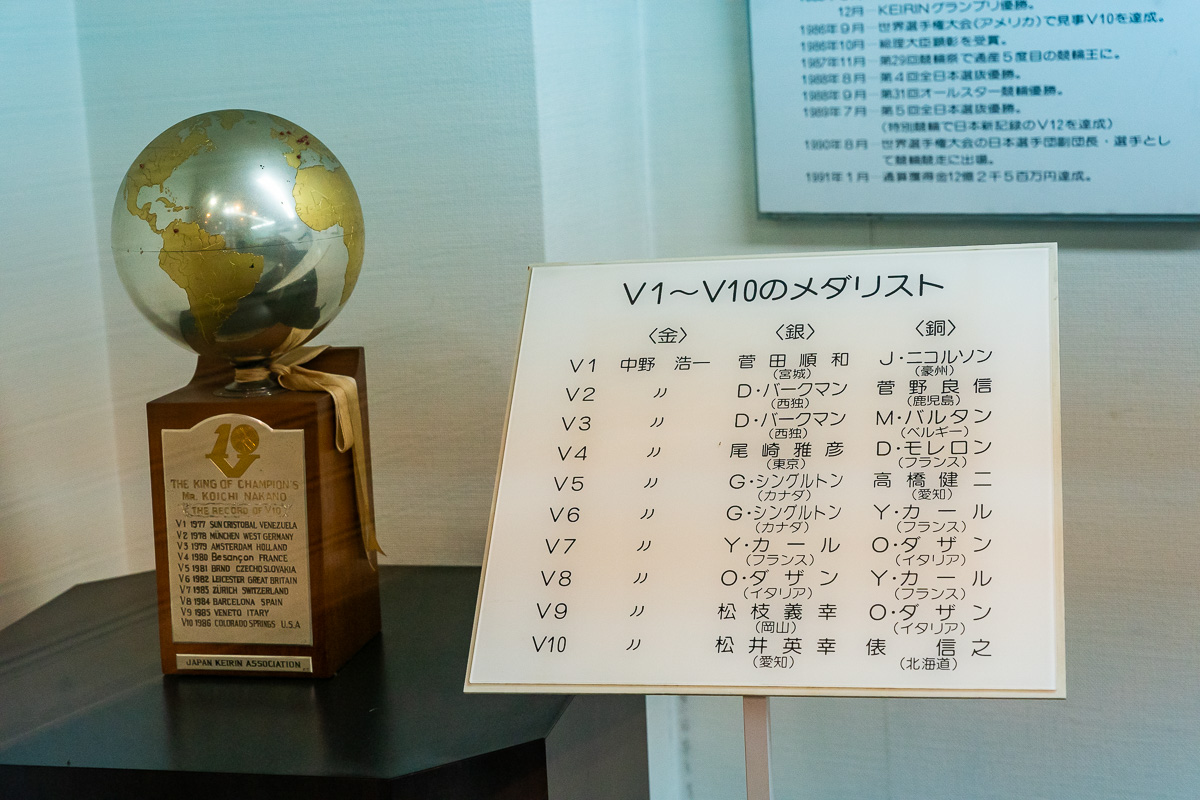 12月 KEIRINグランプリ優勝。
1986年9月 世界選手権大会(アメリカ)で見事V10を達成。
1986年10月 総理大臣顕彰を受賞。
1987年11月 第29回競輪祭で通産5度目の競輪王に。
1988年8月 第4回全日本選抜優勝。
1988年9月 第31回オールスター競輪優勝。
1989年7月 第5回全日本選抜優勝。
(特別競輪で日本新記録のV12を達成)
1990年8月 世界選手権大会の日本選手団副団長・選手とし
て競輪競走に出場。
1991年1月 通算獲得金12億2千5百万円達成。
V1〜V10のメダリスト
〈金〉 〈銀〉 〈銅〉
V1 中野 浩一 菅田順和 J・ニコルソン
(宮城) (豪州)
V2 〃 D・バークマン 菅野良信
(西独) (鹿児島)
V3 〃 D・バークマン M・バルタン
(西独) (ベルギー)
V4 〃 尾崎雅彦 D・モレロン
(東京) (フランス)
V5 〃 G・シングルトン 高橋健二
(カナダ) (愛知)
V6 〃 G・シングルトン Y・カール
(カナダ) (フランス)
V7 〃 Y・カール O・ダザン
(フランス) (イタリア)
V8 〃 O・ダザン Y・カール
(イタリア) (フランス)
V9 〃 松枝義幸 O・ダザン
(岡山) (イタリア)
V10 〃 松井英幸 俵 信之
(愛知) (北海道)
V10
THE KING OF CHAMPION'S
MR. KOICHI NAKANO
THE RECORD OF V10
V1 1977 SUN CRISTOBAL VENEZUELA
V2 1978 MÜNCHEN WEST GERMANY
V3 1979 AMSTERDAM HOLLAND
V4 1980 Besançon FRANCE
V5 1981 BRNO CZECHOSLOVAKIA
V6 1982 LEICESTER GREAT BRITAIN
V7 1983 ZÜRICH SWITZERLAND
V8 1984 BARCELONA SPAIN
V9 1985 VENETO ITARY
V10 1986 COLORADO SPRINGS U.S.A
JAPAN KEIRIN ASSOCIATION